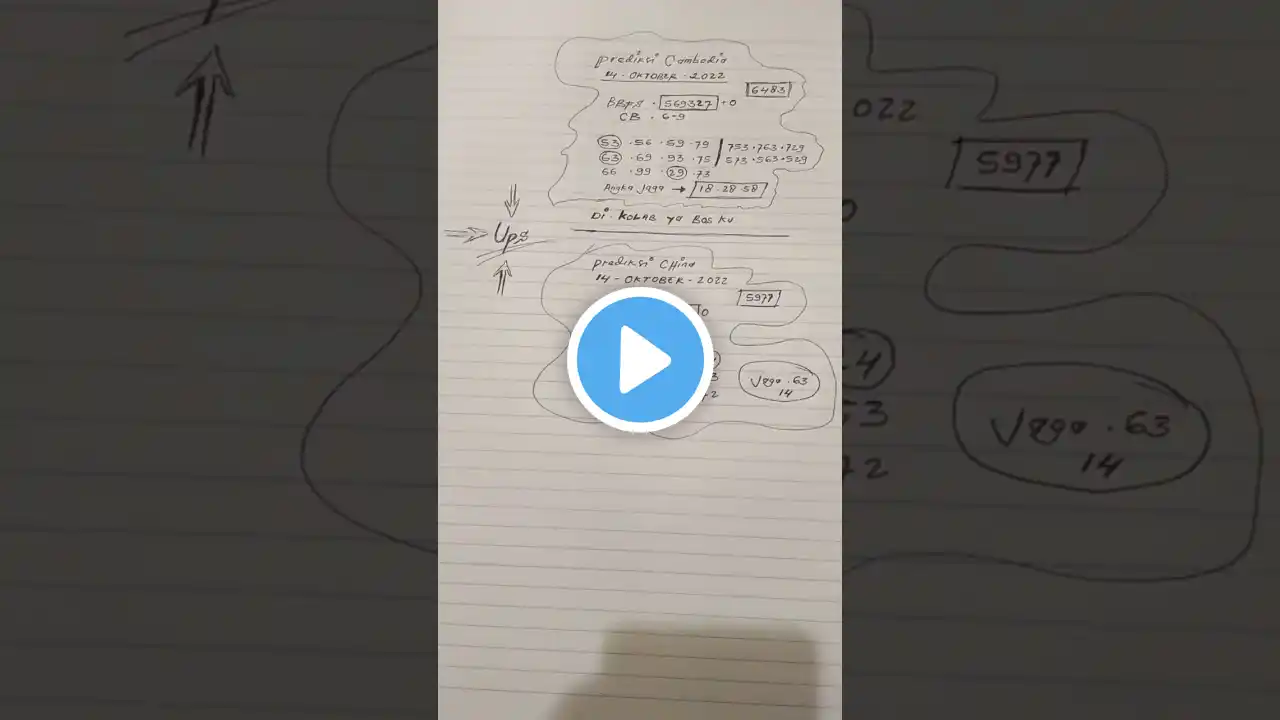 Prediksi Cambodia
14 - OKTOBER - 2022
6483
BBFS · 569327 + 0
CB · 6-9
53 · 56 · 59 · 79 | 753 · 763 · 729
63 · 69 · 93 · 75 | 573 · 563 · 529
66 · 99 · 29 · 73
Angka Jaga → 18 · 28 · 58
Di · KOLAB YA BOSKU
Ups
Prediksi CHina
14 - OKTOBER - 2022
5977
0
Jaga · 63
14
022
5977
0
4
53
72
Jaga · 63
14